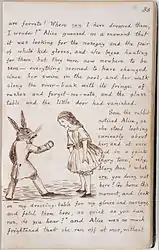 35
are ferrets! Where can I have dropped them,
I wonder?" Alice guessed in a moment that
it was looking for the nosegay and the pair
of white kid gloves, and she began hunting
for them, but they were now nowhere to be
seen — everything seemed to have changed
since her swim in the pool, and her walk
along the river-bank with its fringe of
rushes and forget-me-nots, and the glass
table and the little door had vanished.
Soon the rabbit
noticed Alice, as
she stood looking
curiously about
her, and at once
said in a quick
angry tone,
Mary Ann! what
are you doing out
here? Go home this
moment, and look
on my dressing-table for my gloves and nosegay,
and fetch them here, as quick as you can
run, do you hear?" and Alice was so much
frightened that she ran off at once, without